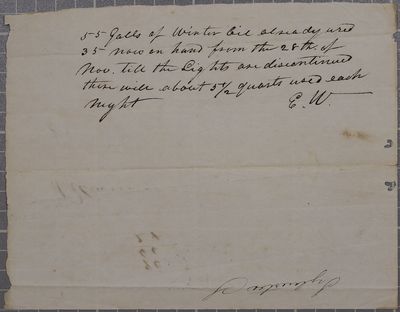 55 Galls of Winter Oil already used
35 now on hand from the 28th. of
Nov. till the Lights are discontinued
there will about 5 1/2 quarts used each
night E. W.